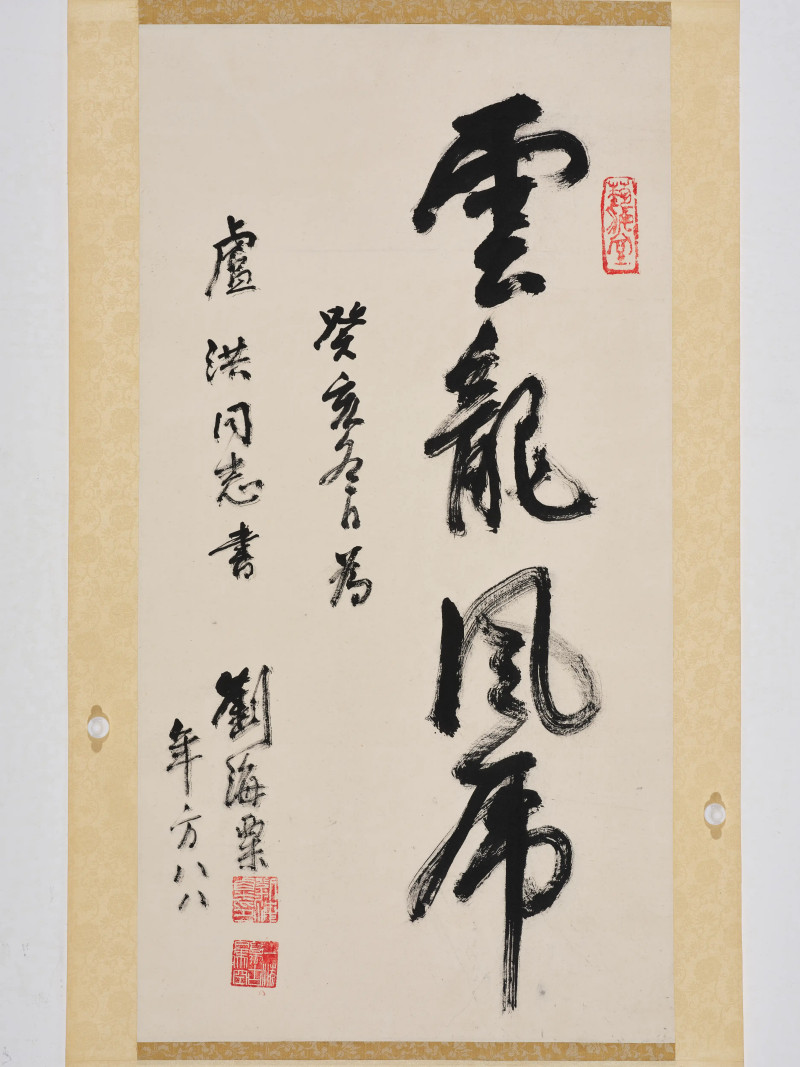 雲龍風虎
癸亥冬日為
盧洪同志書
劉海粟
年方八八
藝海堂